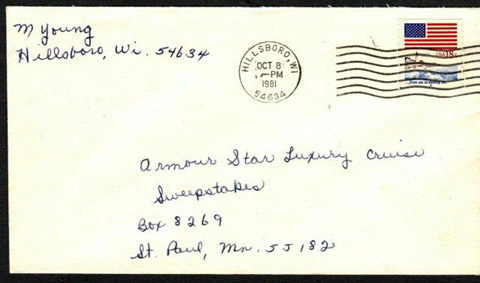 M Young
Hillsboro, Wi. 54634
HILLSBORO, WI
OCT 8
PM
1981
54634
USA 18c
Armour Star Luxury Cruise
Sweepstakes
Box 8269
St. Paul, Mn. 55182